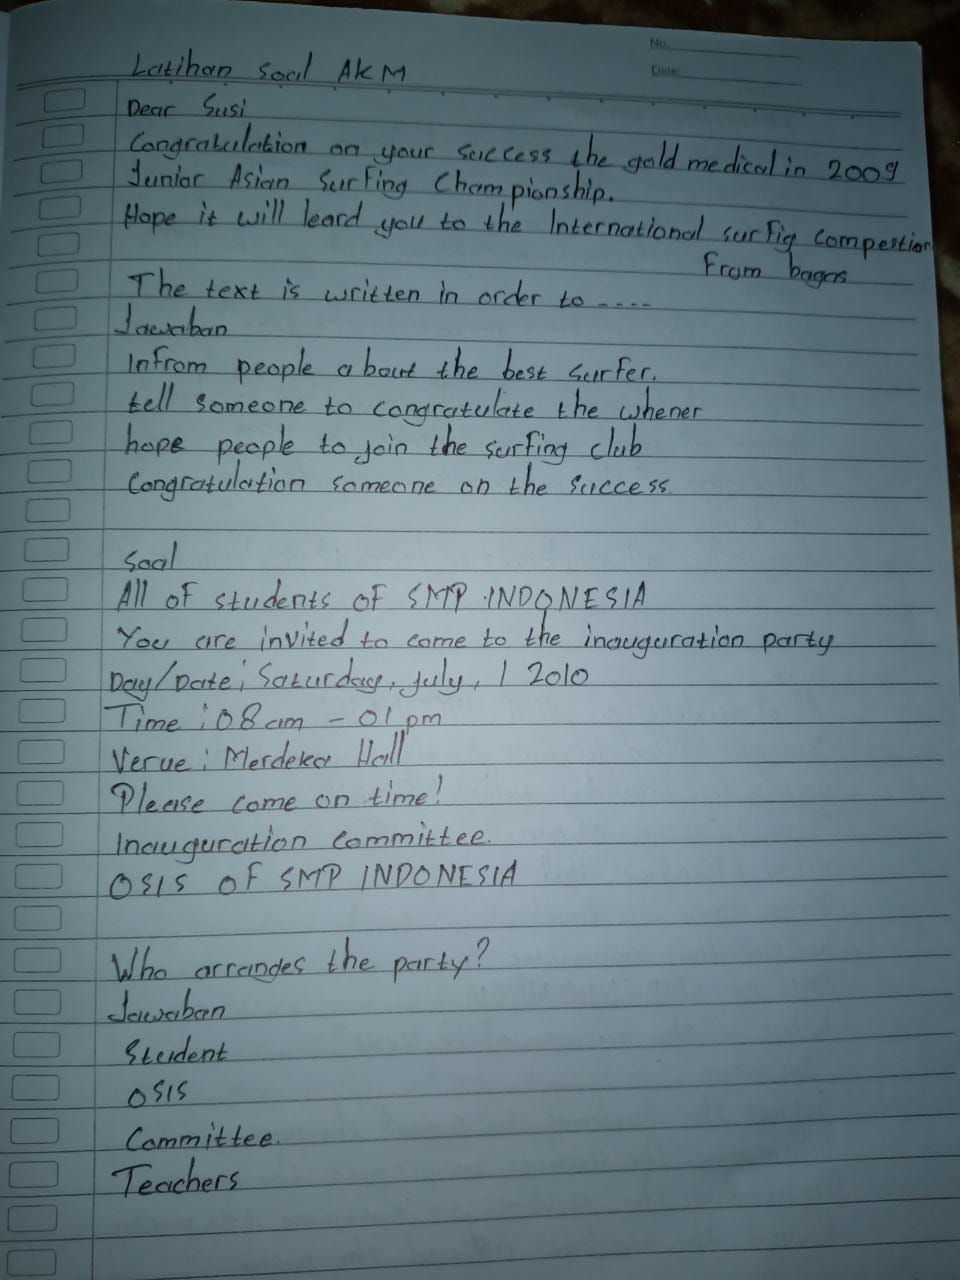 No.
Date:
Latihan soal AKM
Dear Susi
Congratulation on your success the gold medical in 2009
Junior Asian Surfing Championship.
Hope it will leard you to the International surfig Compestion
From bagas
The text is written in order to ....
Jawaban
Infrom people about the best surfer.
tell someone to congratulate the whener
hope people to join the surfing club
Congratulation someone on the success.
Soal
All of students of SMP INDONESIA
You are invited to come to the inauguration party
Day/Date; Saturday, july, 1 2010
Time : 08 am - 01 pm
Verue : Merdeka Hall
Please come on time!
Inauguration Committee.
OSIS OF SMP INDONESIA
Who arrandes the party?
Jawaban
Student
OSIS
Committee.
Teachers